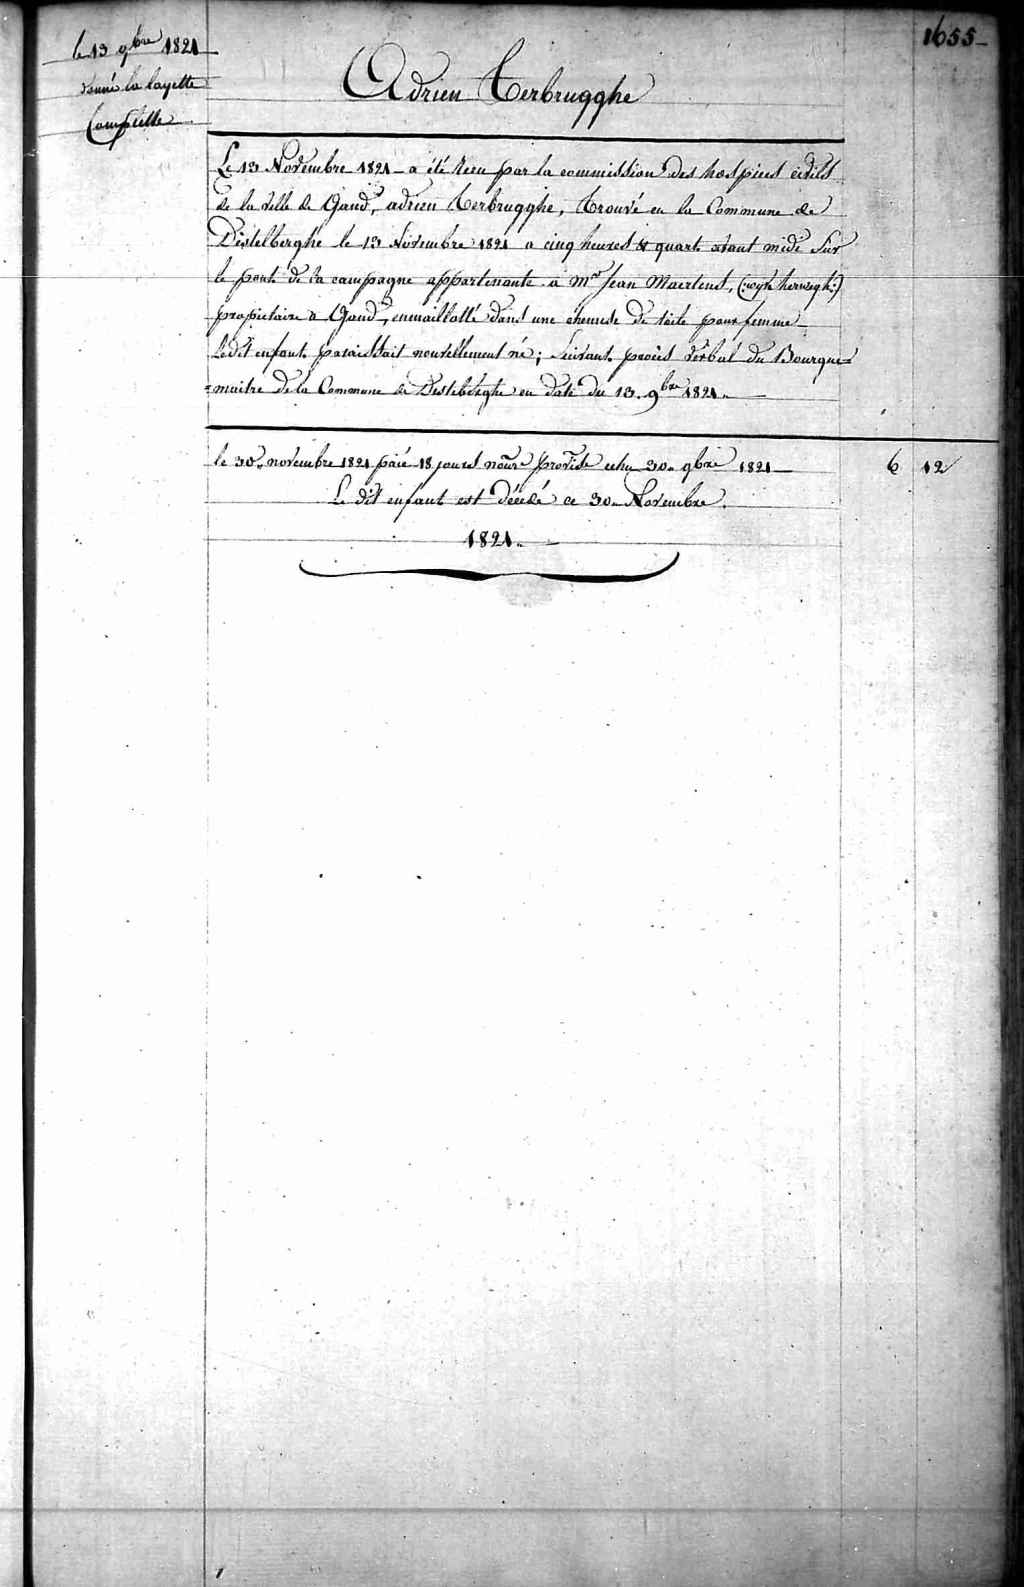 1655
le 13 9bre 1821
donné la layette
Complette
Adrien Terbrugghe
Le 13 Novembre 1821 a été Recu par la commission des hospices civils
de la ville de Gand, adrien Terbrugghe, trouvé en la Commune de
Destelberghe le 13 Novembre 1821 a cinq heures & quart avant midi sur
le pont de la campagne appartenante a Mr Jean Maertens,
propietaire a Gand, emmaillotté dans une chemise de toile pour femme
Ledit enfant paraissait nouvellement né; suivant procès verbal du Bourgue=
=maitre de la Commune de Destelberghe en date du 13. 9bre 1821.
le 30. novembre 1821 paié 18 jours nourre proviste echu 30. 9bre 1821 6 12
Le dit enfant est décédé ce 30. Novembre.
1821.